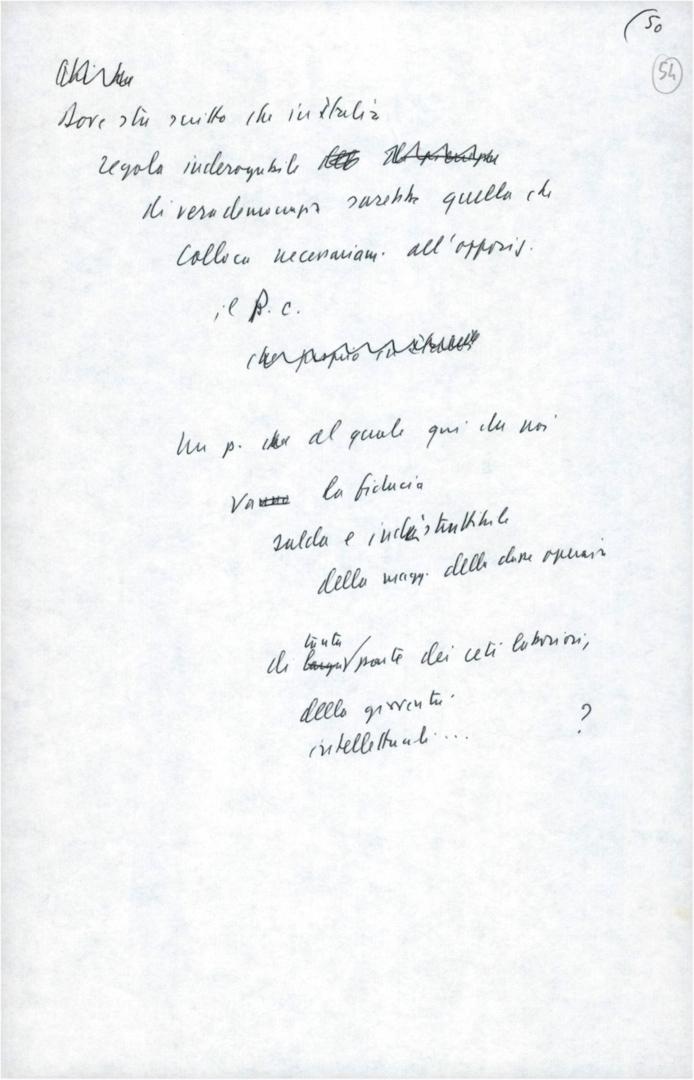 50
54
Dove sta scritto che in Italia
regola inderogabile
di vera democrazia sarebbe quella che
colloca necessariam. all'opposiz.
il P. c.
Un p. al quale qui da noi
va la fiducia
salda e indistruttibile
della magg. della classe operaia
di tanta parte dei ceti laboriosi,
della gioventù
intellettuali ... ?